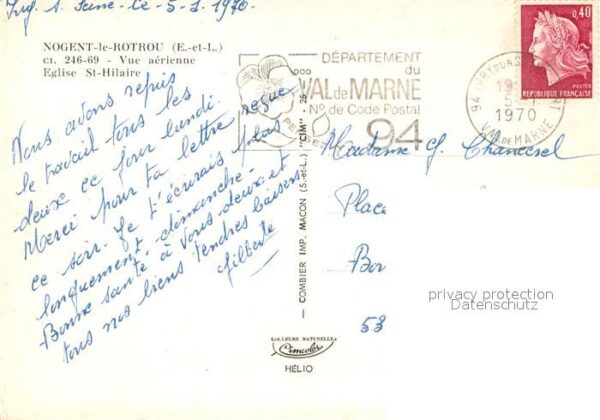 Ivry s. Seine - le - 5-1-1970.
NOGENT-le-ROTROU (E.-et-L.)
CI. 246-69 - Vue aérienne
Eglise St-Hilaire
Nous avons repris
le travail tous les
deux ce jour lundi.
Merci pour ta lettre reçue
ce soir. Je t'écrirais plus
longuement dimanche.
Bonne santé à vous deux et
tous nos biens tendres baisers
Gilberte
COMBIER IMP. MACON (S.-et-L.) "CIM" - 25
COULEURS NATURELLES
Cimcolor
HÉLIO
DÉPARTEMENT
du
VAL de MARNE
N° de Code Postal
94
PENSEZ
94 IVRY SUR S
5-1
1970
VAL DE MARNE
0,40
POSTES
REPUBLIQUE FRANÇAISE
Madame G. Chancerel
Place
Bor
53
privacy protection
Datenschutz